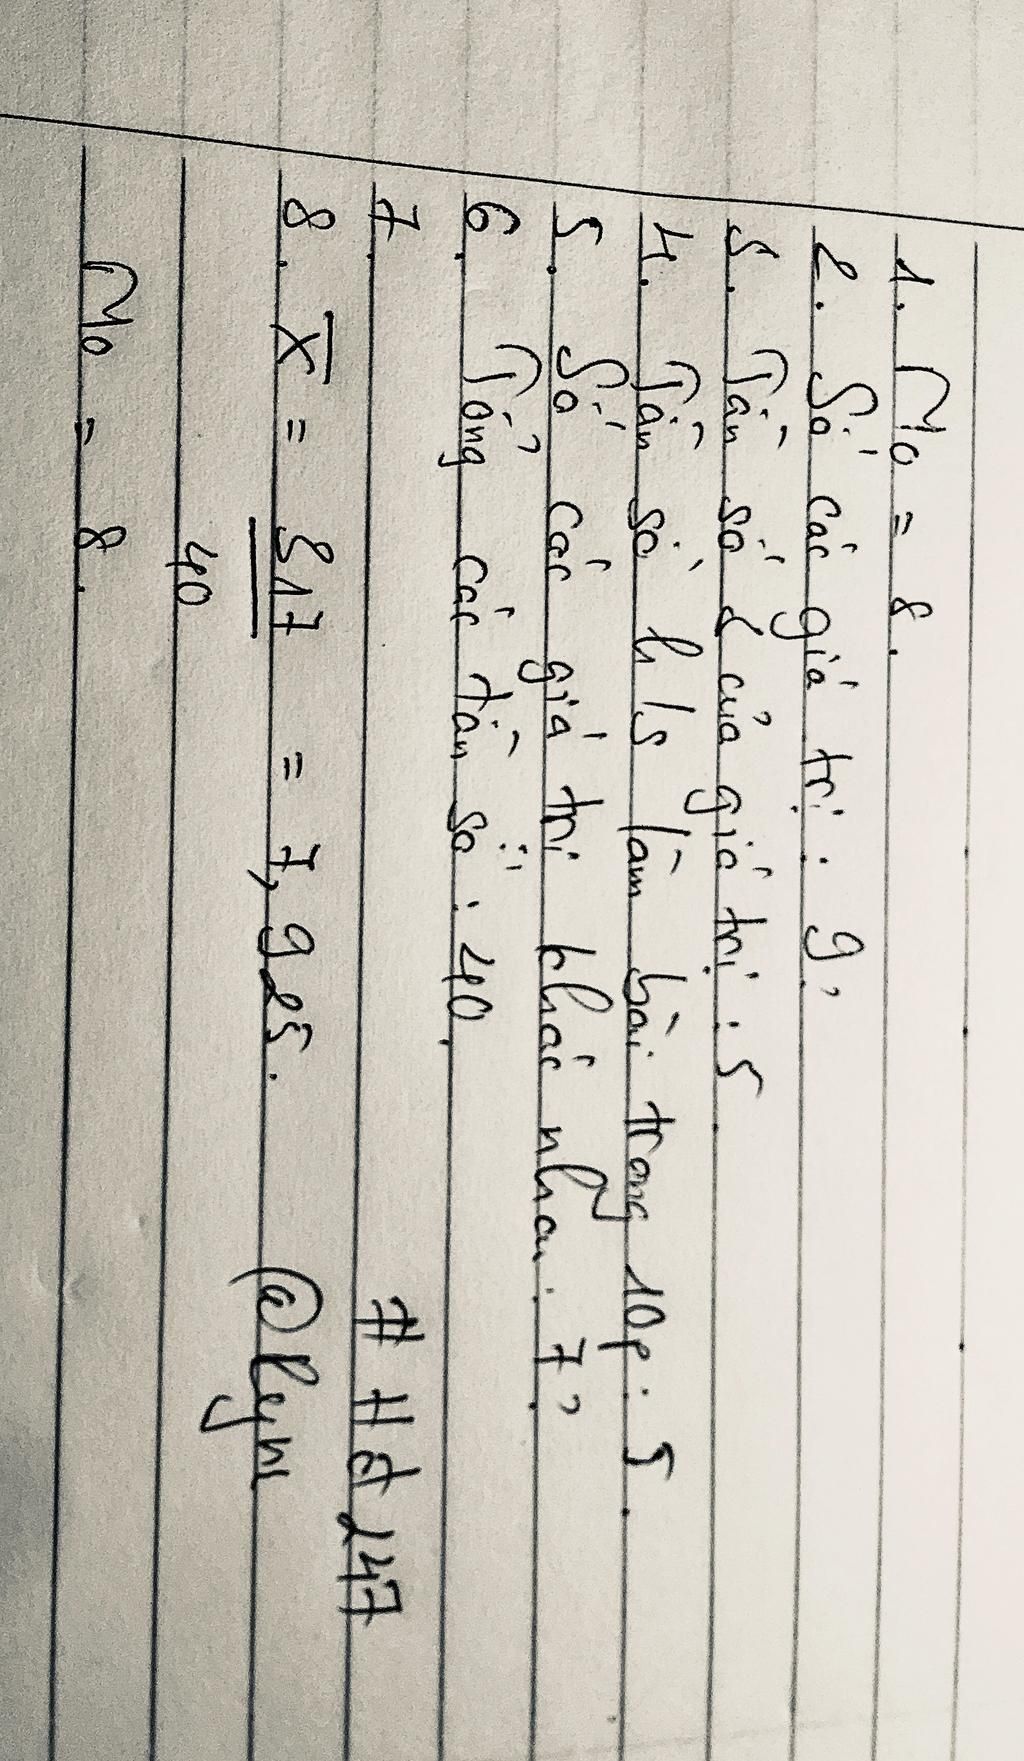 1. Mo = 8.
2. Số các giá trị : 9,
3. Tần số 3 của giá trị : 5.
4. Tần số h/s làm bài trong 10p : 5.
5. Số các giá trị khác nhau : 7,
6. Tổng các tần số : 40.
7. # Hd 247
8. X̄ = 317 / 40 = 7,925. @lynz
Mo = 8.